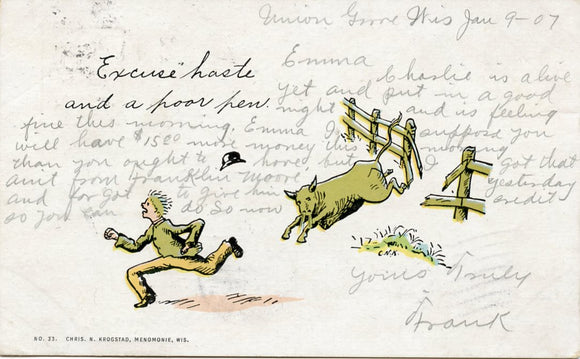 Union Grove Wis Jan 9-07
Emma
Excuse haste
and a poor pen.
Charlie is alive
yet and put in a good
night and is feeling
fine this morning. Emma I suppose you
will have $15.00 more money this morning
than you ought to have but I got that
am't from Franklin Moore yesterday
and forgot to give him credit
so you can do so now
Yours Truly
Frank
C.N.K.
NO. 23. CHRIS. N. KROGSTAD, MENOMONIE, WIS.